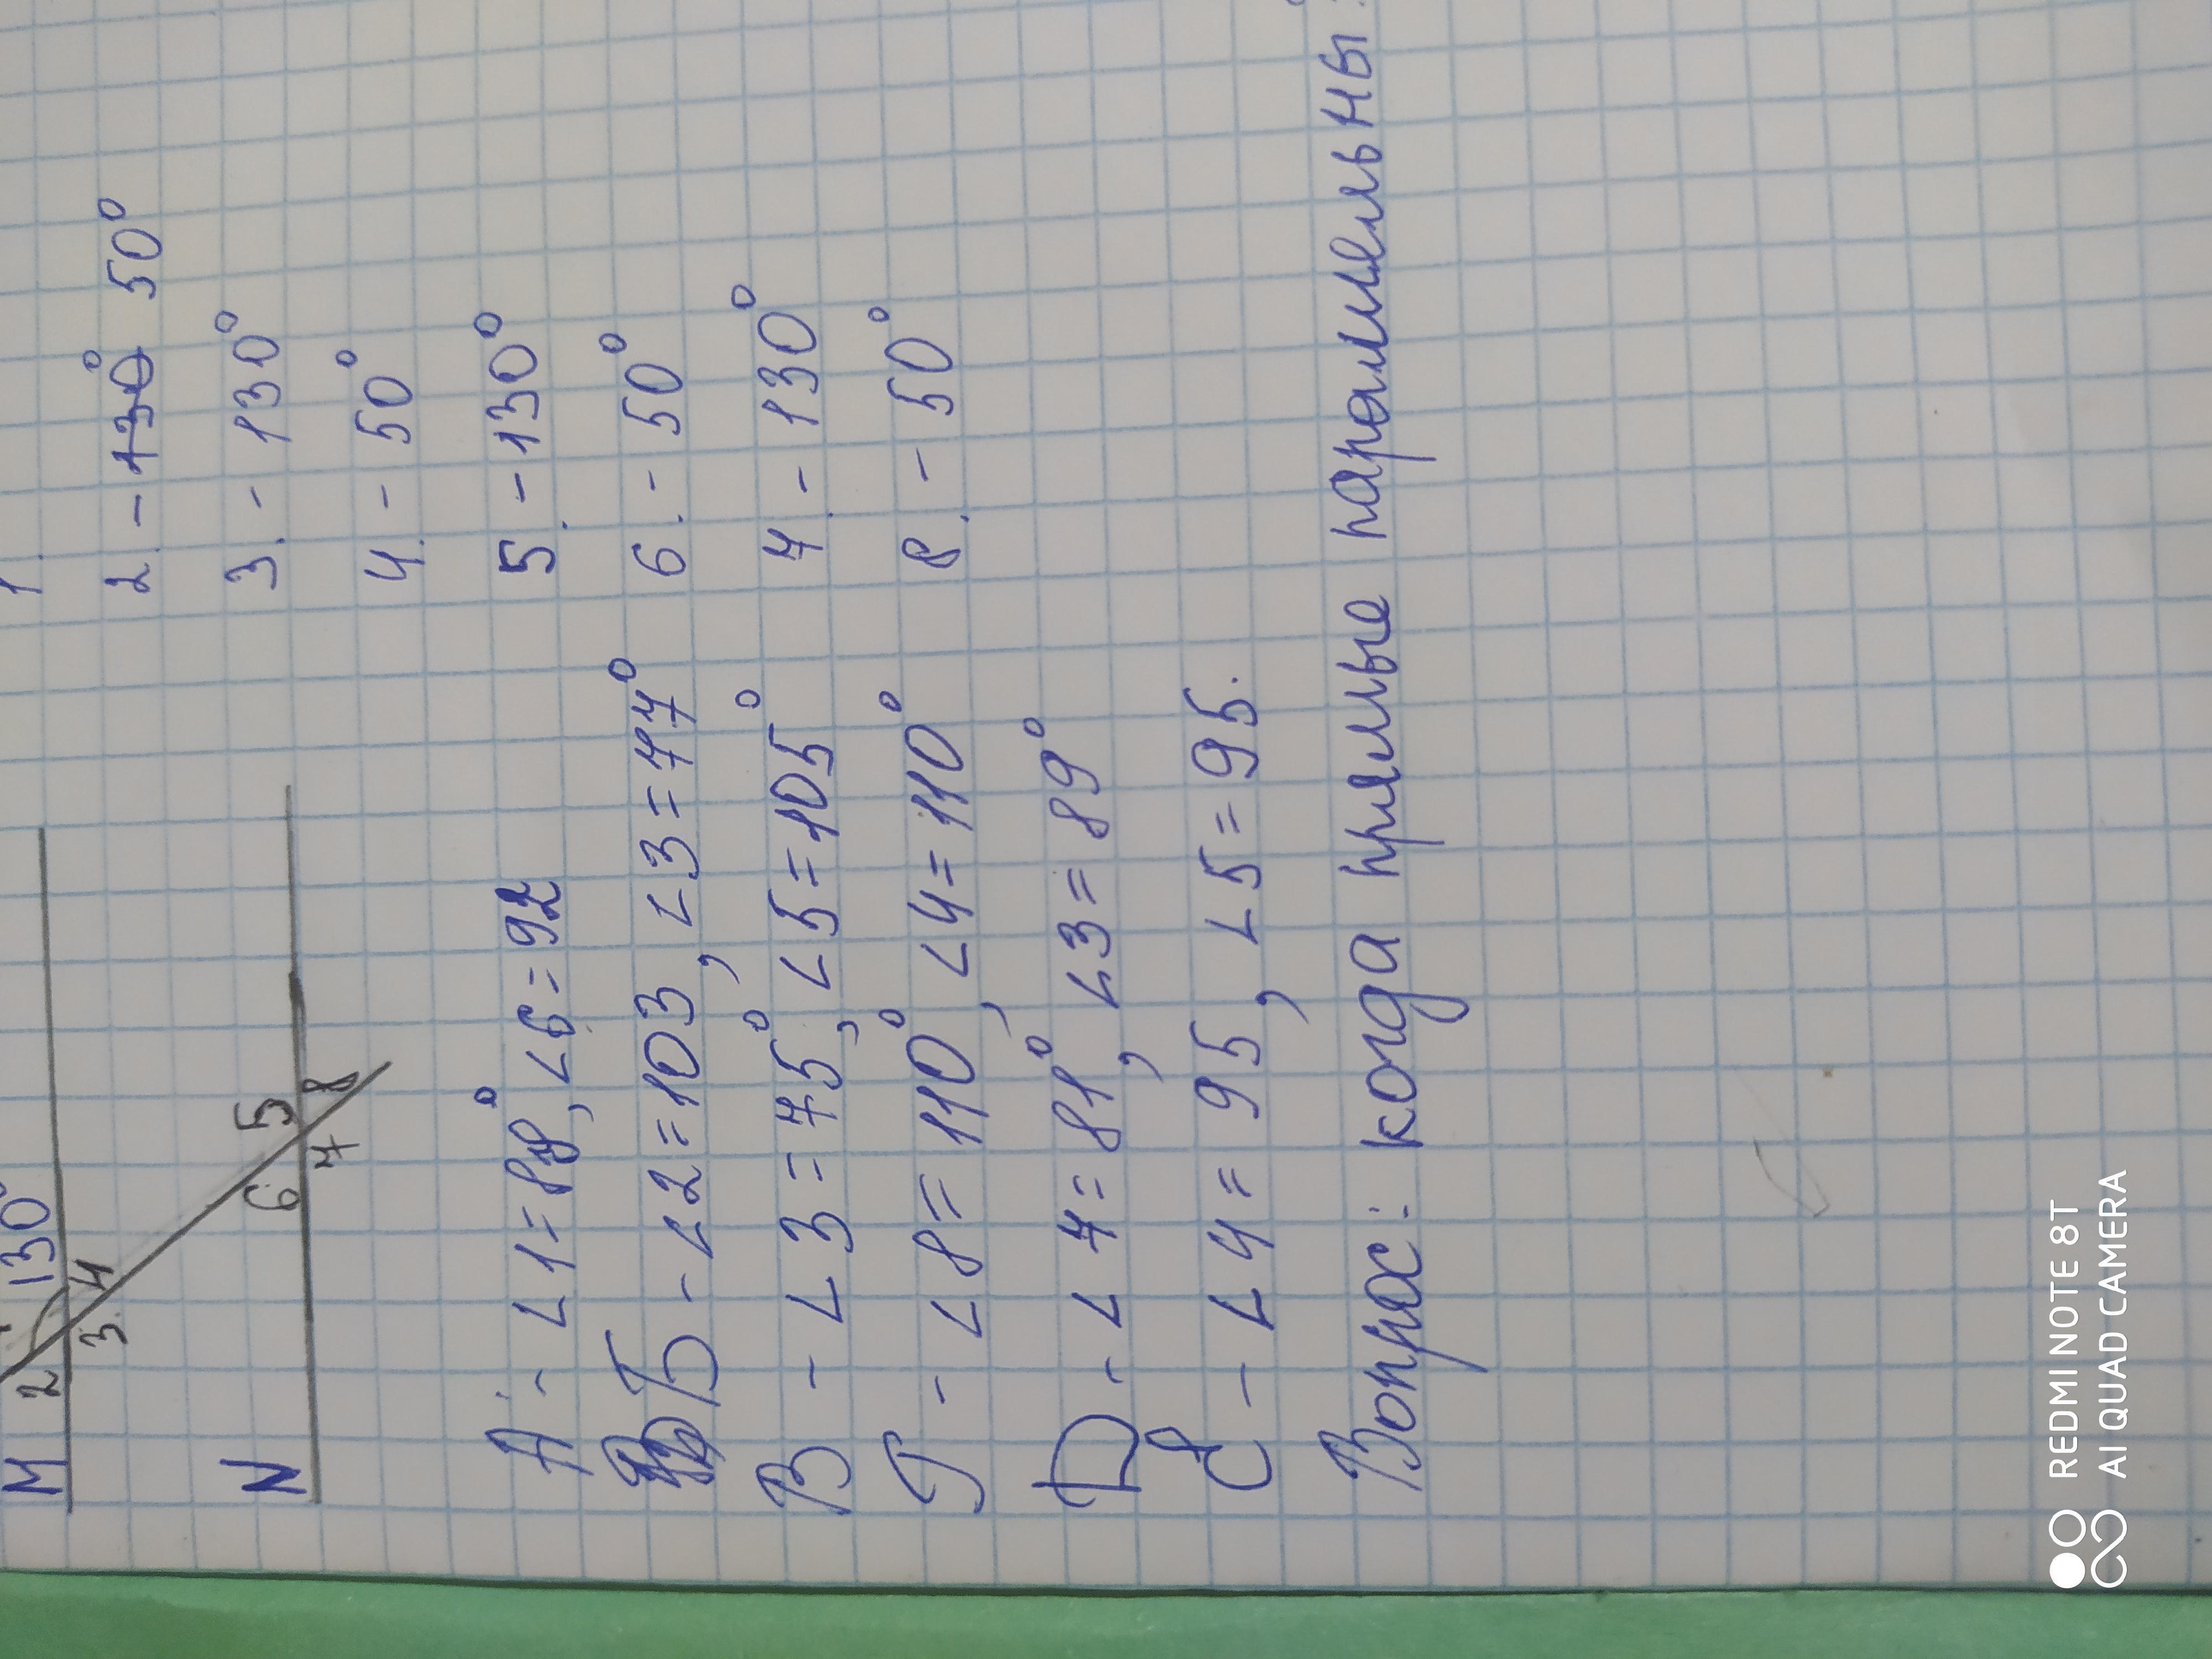 1.
2. - 130° 50°
3. - 130°
4. - 50°
5. - 130°
6. - 50°
7 - 130°
8. - 50°
M 2 130°
3. 4
N 6 5
7 8
А - ∠1 = 88°, ∠6 = 92
Б - ∠2 = 103, ∠3 = 77°
В - ∠3 = 75°, ∠5 = 105°
Г - ∠8 = 110°, ∠4 = 110°
D - ∠7 = 81°, ∠3 = 89°
Е - ∠4 = 95, ∠5 = 95.
Вопрос: когда прямые параллельны?
REDMI NOTE 8T
AI QUAD CAMERA